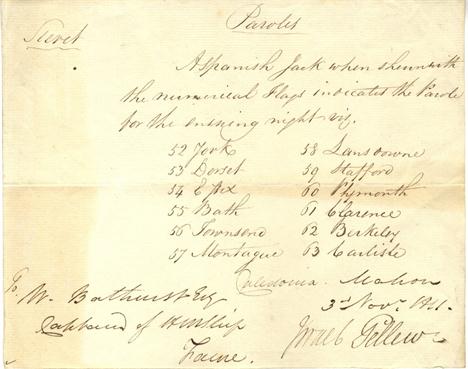 Secret
Paroles
A Spanish Jack when shewn with
the numerical Flags indicates the Parole
for the ensuing night viz.
52 York 58 Lansdowne
53 Dorset 59 Stafford
54 Essex 60 Plymouth
55 Bath 61 Clarence
56 Townsend 62 Berkeley
57 Montague 63 Carlisle
Caledonia. Mahon
3d Novr. 1811.
To W. Bathurst Esq
Captain of HM Ship
Fame.
Israel Pellew